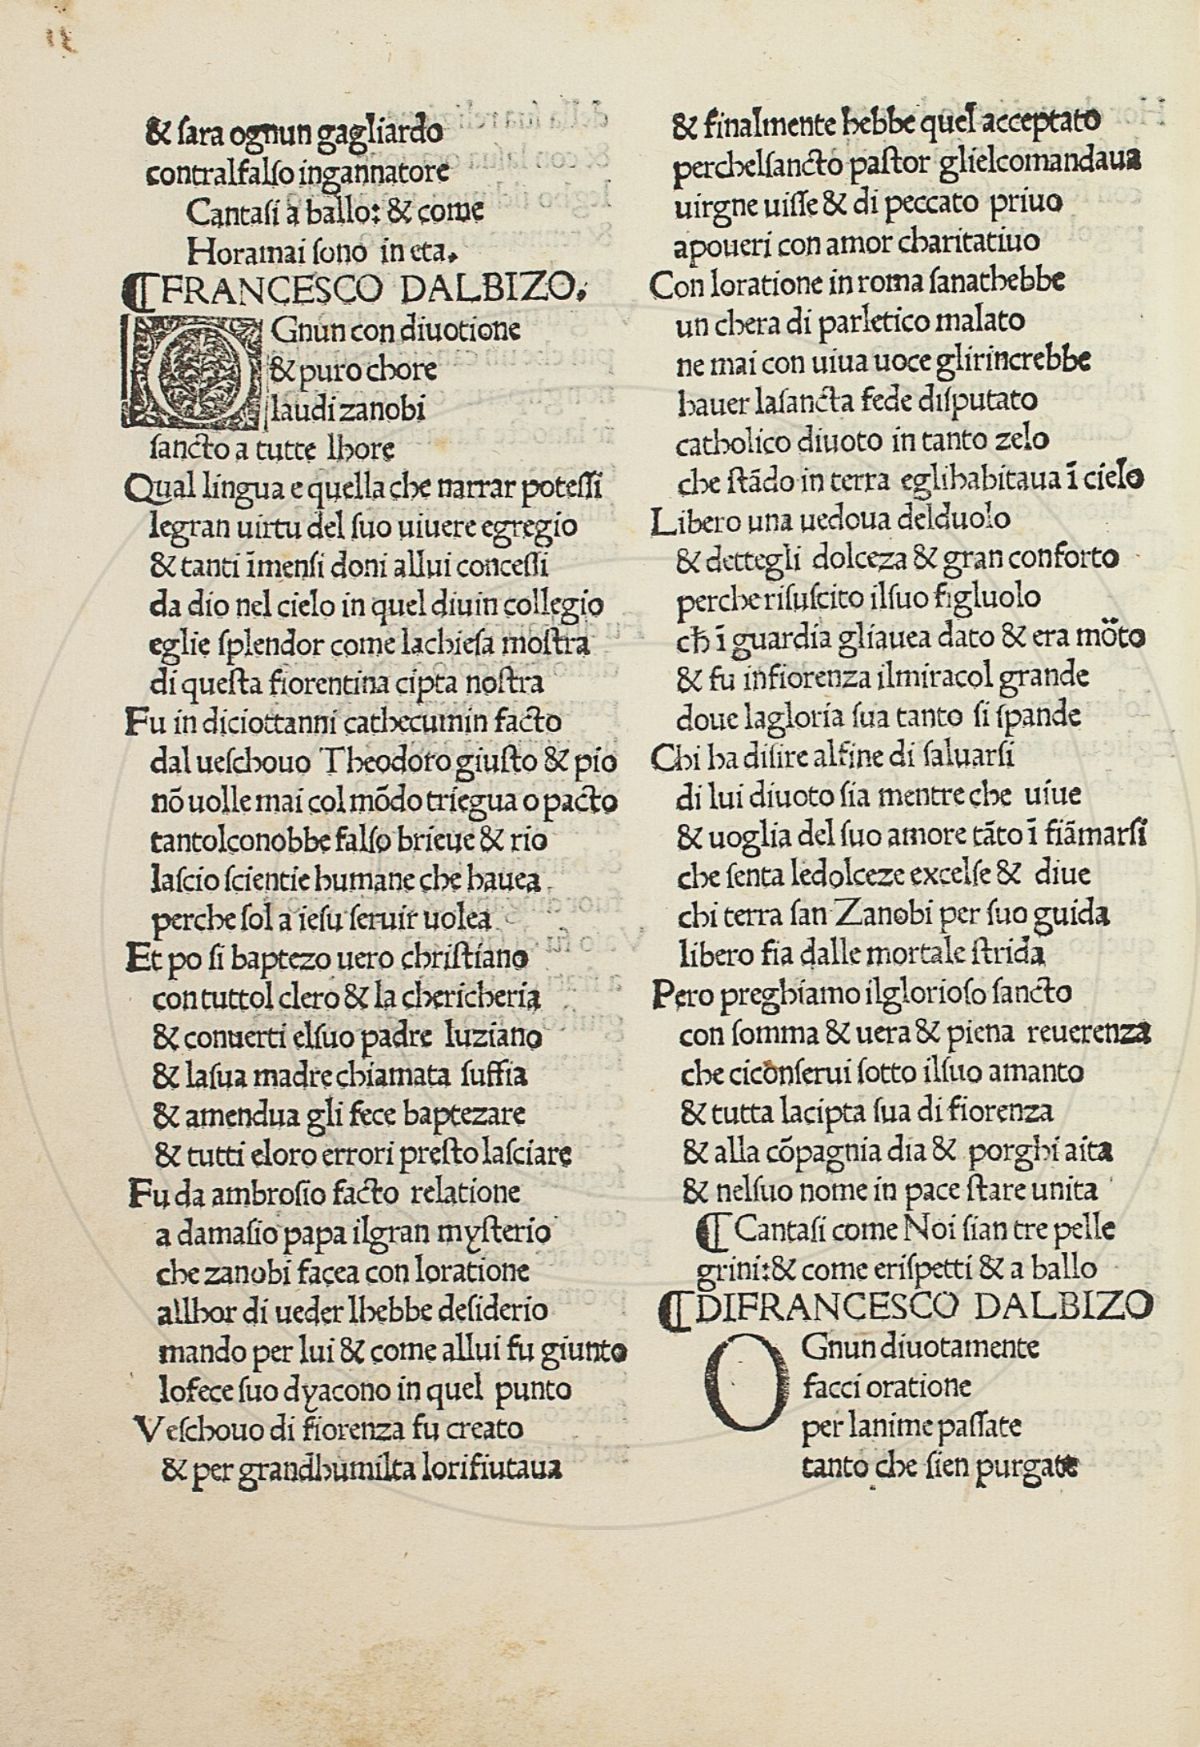 & ſara ognun gagliardo
contralfalſo ingannatore
Cantaſi a ballo: & come
Horamai ſono in eta.
¶FRANCESCO DALBIZO.
OGnun con diuotione
& puro chore
laudi zanobi
ſancto a tutte lhore
Qual lingua e quella che narrar poteſſi
legran uirtu del ſuo uiuere egregio
& tanti īmenſi doni allui conceſſi
da dio nel cielo in quel diuin collegio
eglie ſplendor come lachieſa moſtra
di queſta fiorentina cipta noſtra
Fu in diciottanni cathecumin facto
dal ueſchouo Theodoro giuſto & pio
nō uolle mai col mōdo triegua o pacto
tantolconobbe falſo brieue & rio
laſcio ſcientie humane che hauea
perche ſol a ieſu ſeruir uolea
Et po ſi baptezo uero chriſtiano
con tuttol clero & la chericheria
& conuerti elſuo padre luziano
& laſua madre chiamata ſuffia
& amendua gli fece baptezare
& tutti eloro errori preſto laſciare
Fu da ambroſio facto relatione
a damaſio papa ilgran myſterio
che zanobi facea con loratione
allhor di ueder lhebbe deſiderio
mando per lui & come allui fu giunto
lofece ſuo dyacono in quel punto
Veſchouo di fiorenza fu creato
& per grandhumilta lorifiutaua
& finalmente hebbe quel acceptato
perchelſancto paſtor glielcomandaua
uirgne uiſſe & di peccato priuo
apoueri con amor charitatiuo
Con loratione in roma ſanathebbe
un chera di parletico malato
ne mai con uiua uoce glirincrebbe
hauer laſancta fede diſputato
catholico diuoto in tanto zelo
che ſtādo in terra eglihabitaua ī cielo
Libero una uedoua delduolo
& dettegli dolceza & gran conforto
perche riſuſcito ilſuo figluolo
cħ ī guardia gliauea dato & era mo̎to
& fu infiorenza ilmiracol grande
doue lagloria ſua tanto ſi ſpande
Chi ha diſire alfine di ſaluarſi
di lui diuoto ſia mentre che uiue
& uoglia del ſuo amore tāto ī fiāmarſi
che ſenta ledolceze excelſe & diue
chi terra ſan Zanobi per ſuo guida
libero fia dalle mortale ſtrida
Pero preghiamo ilglorioſo ſancto
con ſomma & uera & piena reuerenza
che ciconſerui ſotto ilſuo amanto
& tutta lacipta ſua di fiorenza
& alla cōpagnia dia & porghi aita
& nelſuo nome in pace ſtare unita
¶ Cantaſi come Noi ſian tre pelle
grini:& come eriſpetti & a ballo
¶DIFRANCESCO DALBIZO
OGnun diuotamente
facci oratione
per lanime paſſate
tanto che ſien purgate